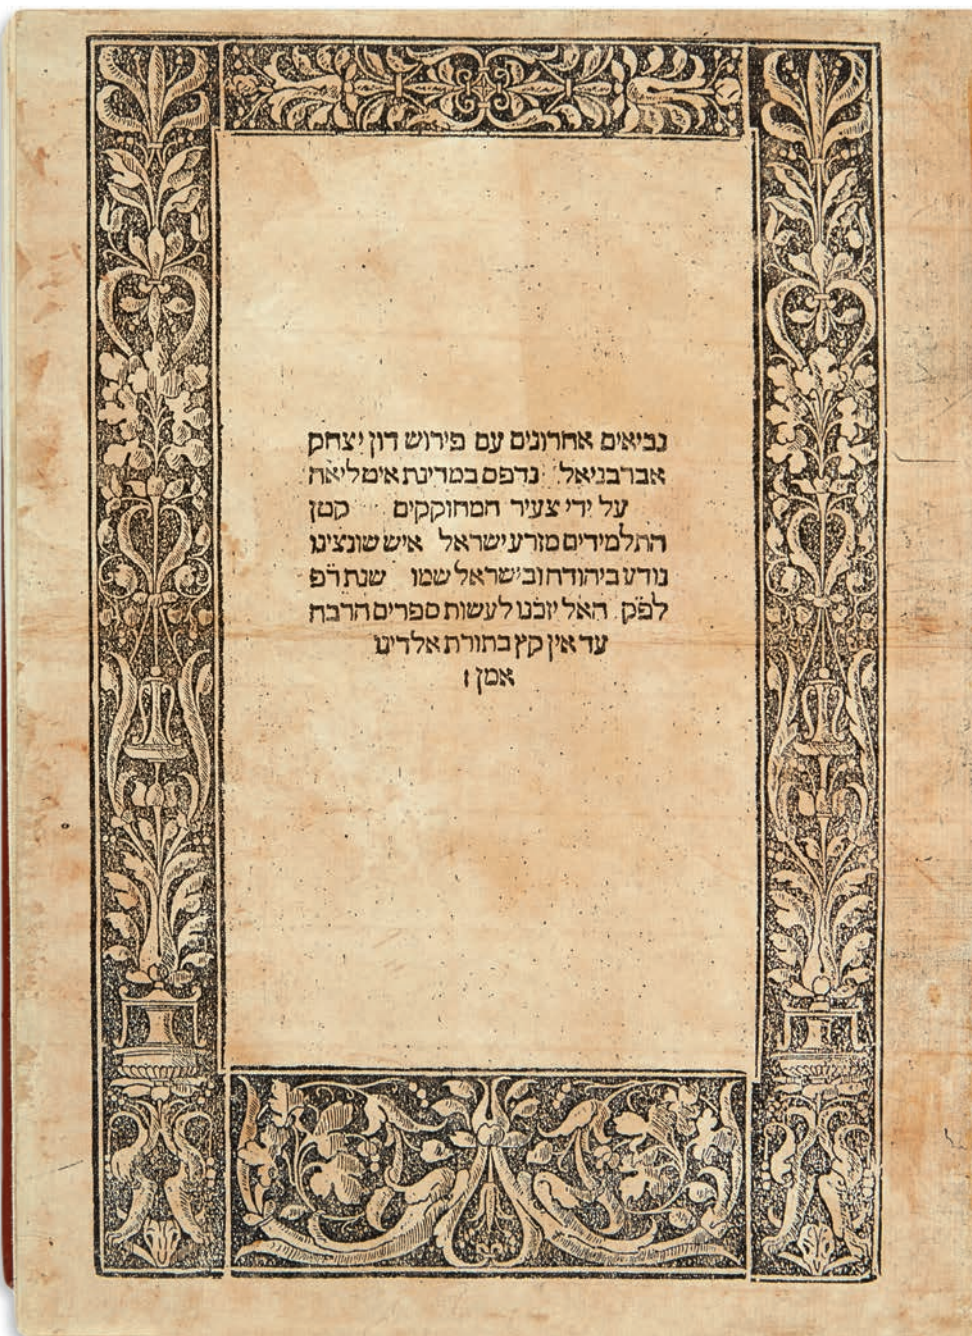 נביאים אחרונים עם פירוש דון יצחק
אברבניאל נדפס במדינת איטליאה
על ידי צעיר המחוקקים קטן
התלמידים מזרע ישראל איש שונצינו
נודע ביהודה ובישראל שמו שנת ר̇פ
לפ̇ק האל יזכנו לעשות ספרים הרבה
עד אין קץ בתורת אלדינו
אמן ז